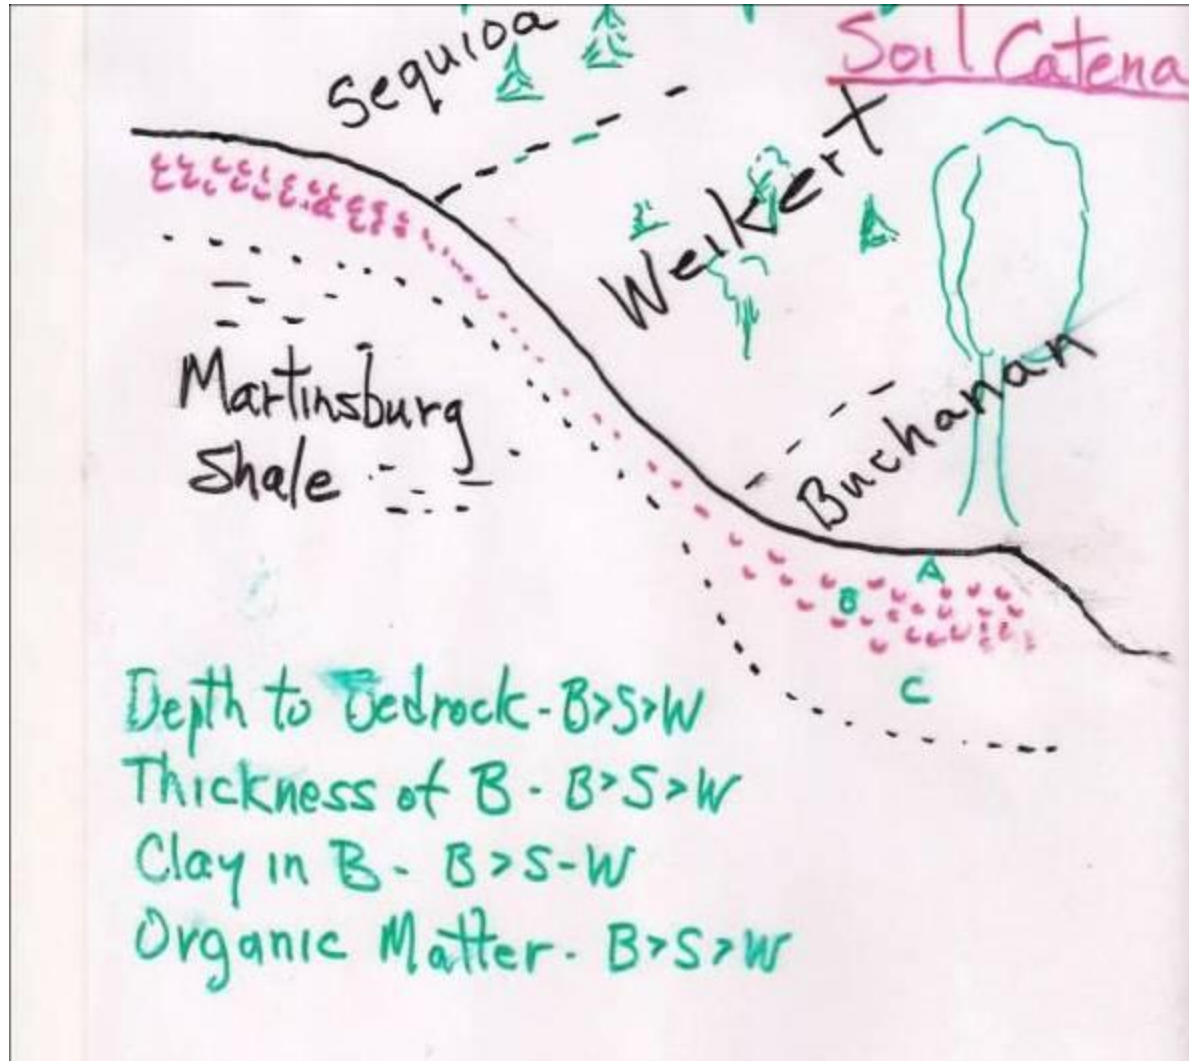 Soil Catena
Sequioa
Weikert
Buchanan
Martinsburg
Shale
A
B
C
Depth to Bedrock - B>S>W
Thickness of B - B>S>W
Clay in B - B>S-W
Organic Matter - B>S>W